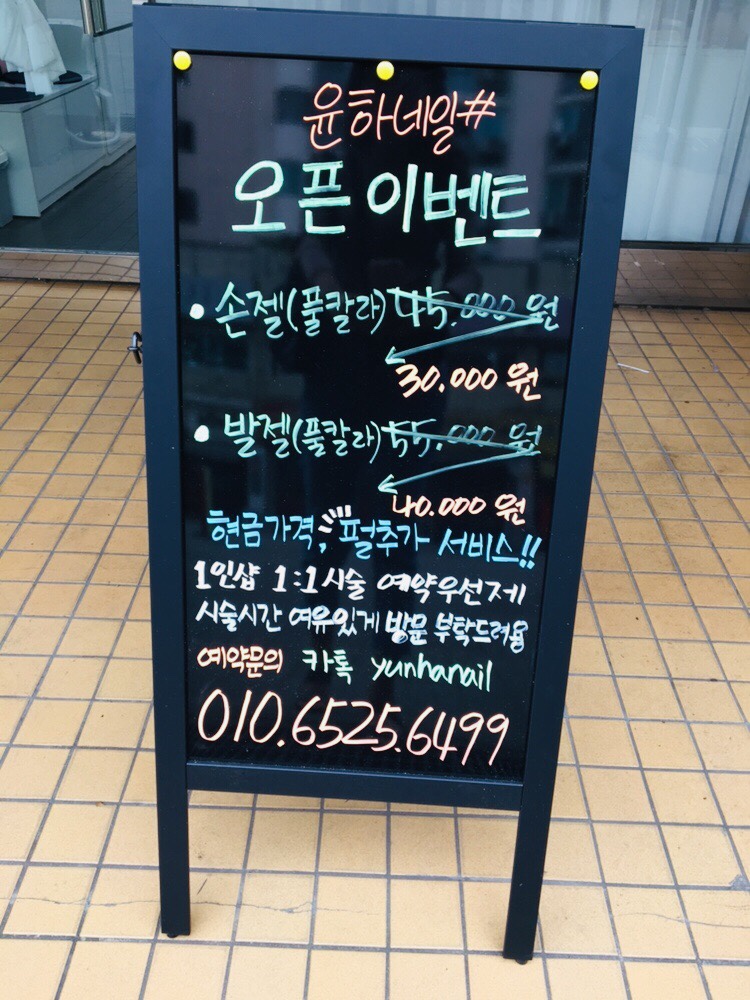 윤하네일#
오픈 이벤트
• 손젤(풀칼라) 45.000 원
30.000 원
• 발젤(풀칼라) 55.000 원
40.000 원
현금가격, 펄추가 서비스!!
1인샵 1:1시술 예약우선제
시술시간 여유있게 방문 부탁드려용
예약문의 카톡 yunhanail
010.6525.6499